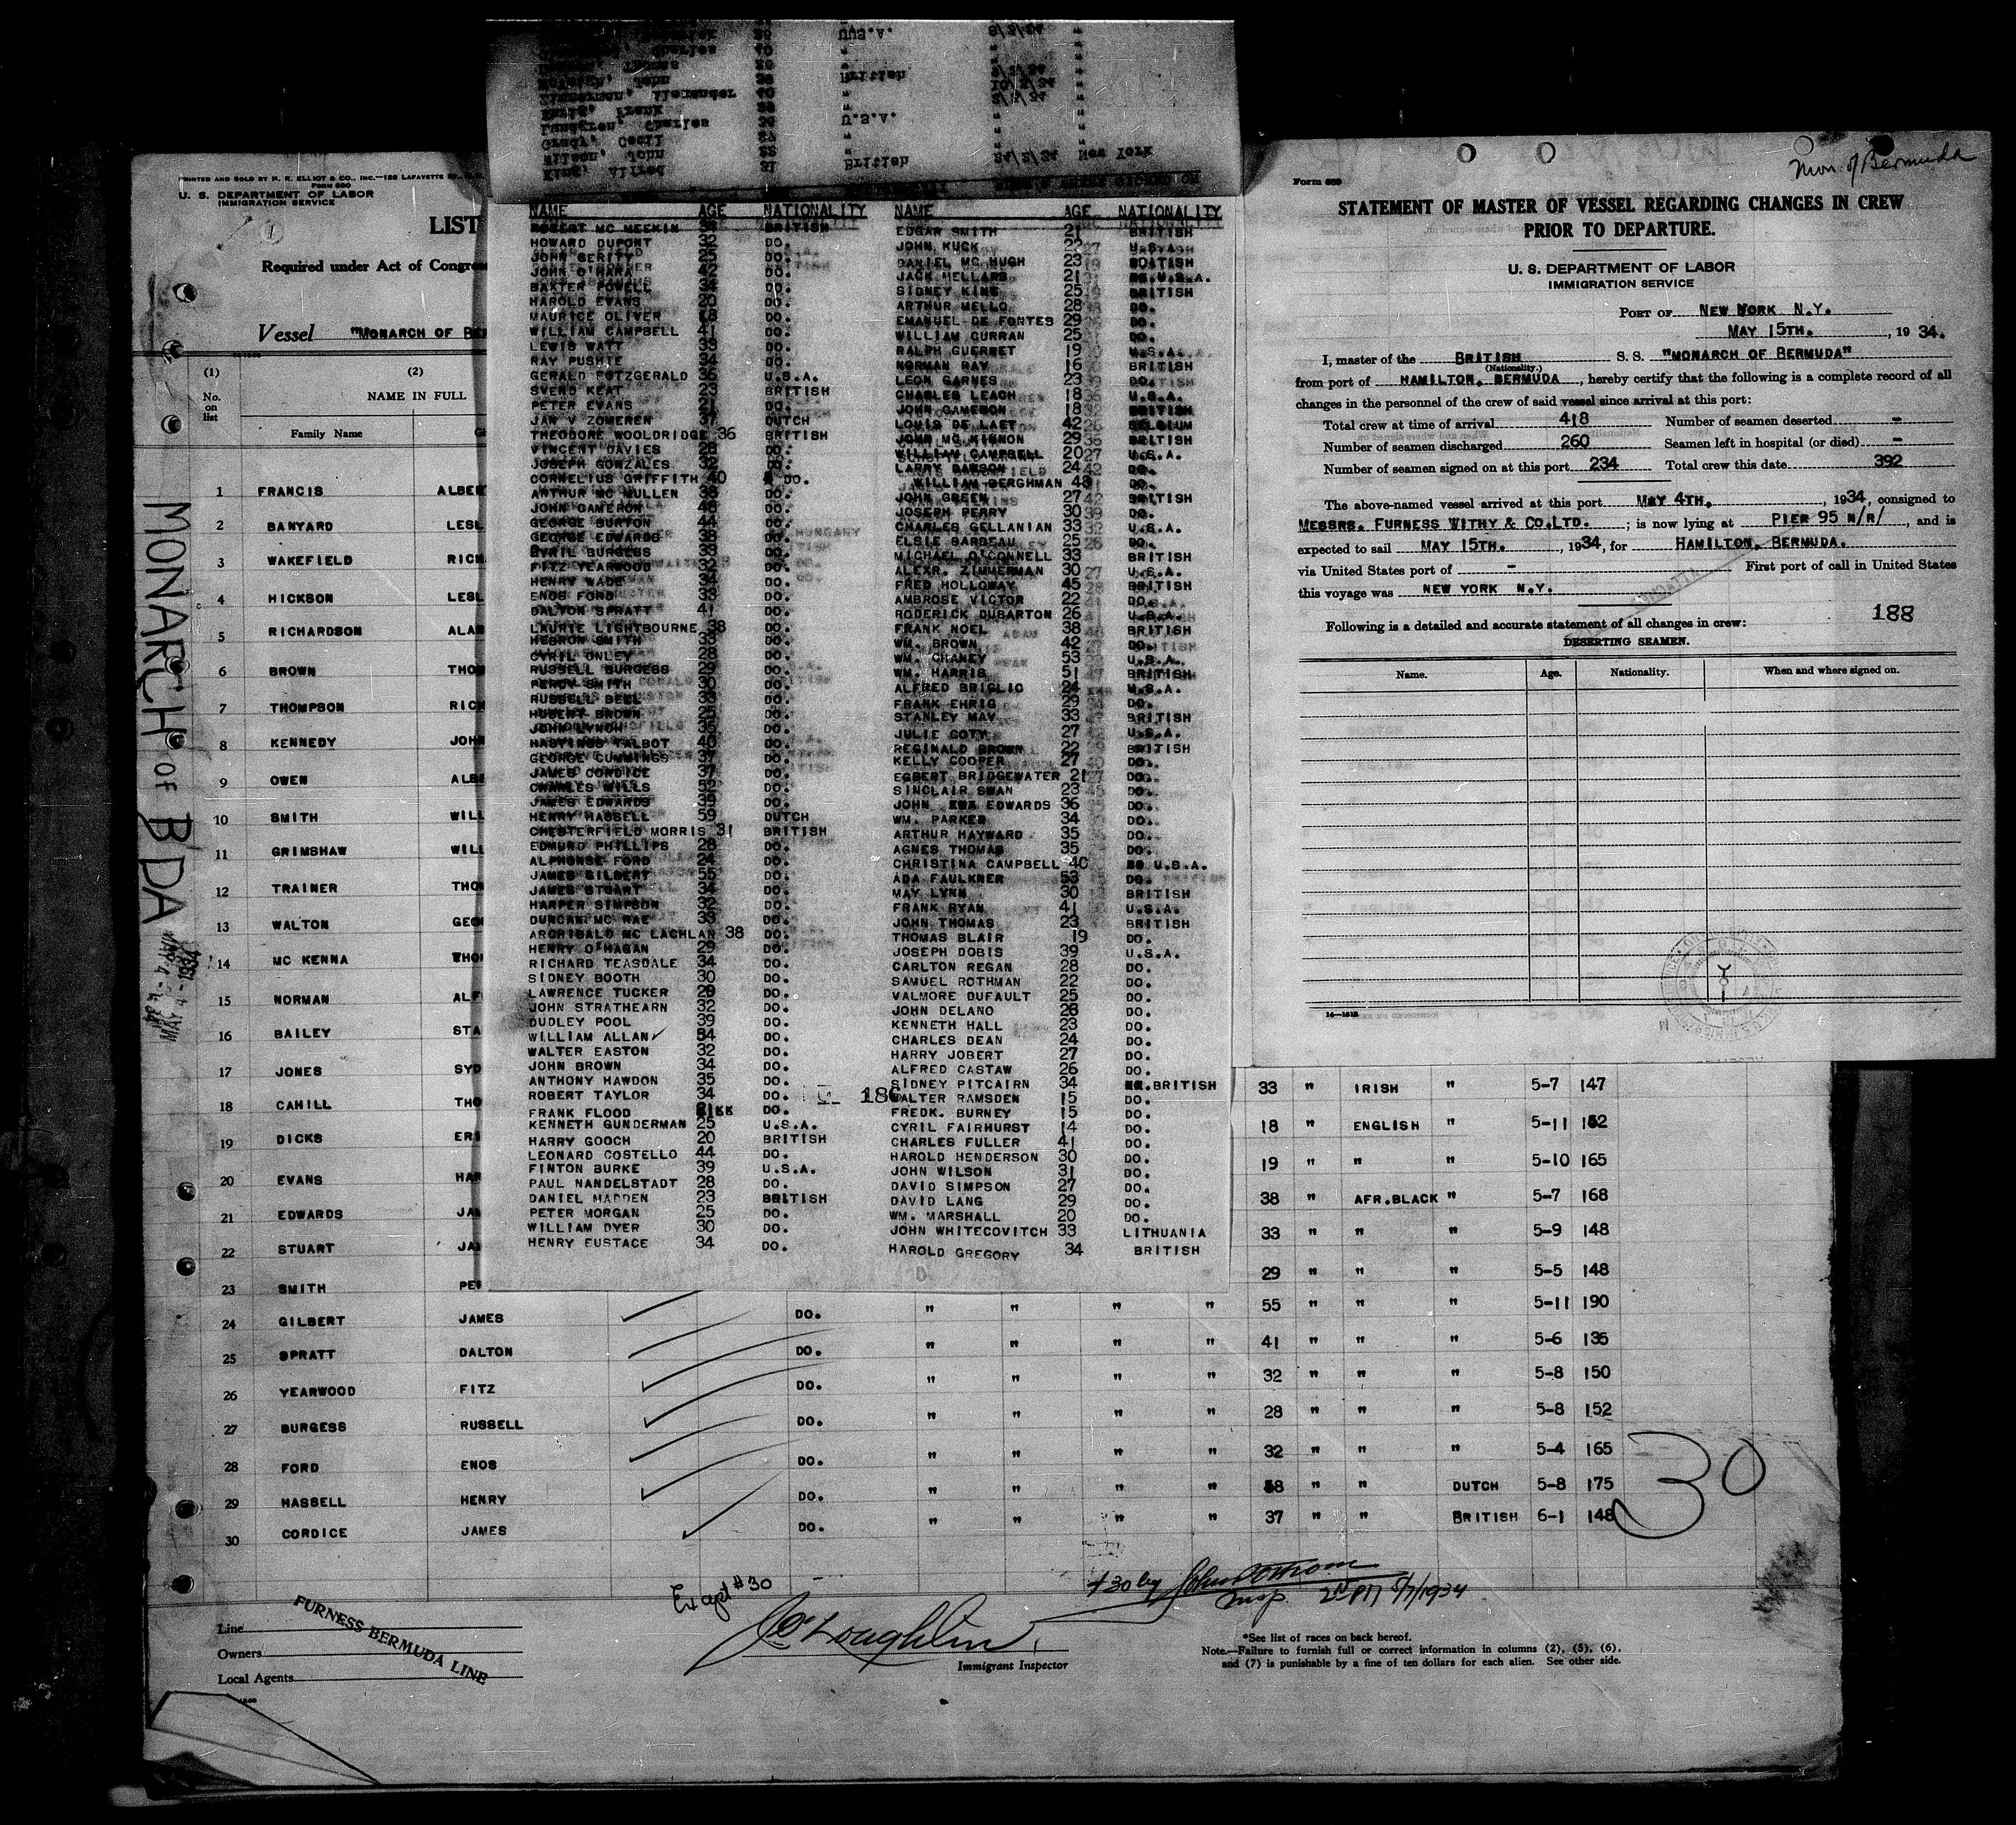 PRINTED AND SOLD BY M. R. ELLIOT & CO., INC.—129 LAFAYETTE
FORM 680
U. S. DEPARTMENT OF LABOR
IMMIGRATION SERVICE
1
LIST
Required under Act of Congre
Vessel "MONARCH OF BE
(1) (2)
No. on list
NAME IN FULL
Family Name
1 FRANCIS ALBE
2 BANYARD LESL
3 WAKEFIELD RICH
4 HICKSON LESL
5 RICHARDSON ALAN
6 BROWN THO
7 THOMPSON RICH
8 KENNEDY JOHN
9 OWEN ALBE
10 SMITH WILL
11 GRIMSHAW WILL
12 TRAINER THO
13 WALTON GEO
14 MC KENNA THO
15 NORMAN ALF
16 BAILEY STA
17 JONES SYD
18 CAHILL THO
19 DICKS ERI
20 EVANS HAR
21 EDWARDS JA
22 STUART JA
23 SMITH PE
24 GILBERT JAMES DO. " " " " 55 " " " 5-11 190
25 SPRATT DALTON DO. " " " " 41 " " " 5-6 135
26 YEARWOOD FITZ DO. " " " " 32 " " " 5-8 150
27 BURGESS RUSSELL DO. " " " " 28 " " " 5-8 152
28 FORD ENOS DO. " " " " 32 " " " 5-4 165
29 HASSELL HENRY DO. " " " " 58 " " DUTCH 5-8 175
30 CORDICE JAMES DO. " " " " 37 " " BRITISH 6-1 148
33 " IRISH " 5-7 147
18 " ENGLISH " 5-11 152
19 " " " 5-10 165
38 " AFR.BLACK " 5-7 168
33 " " " 5-9 148
29 " " " 5-5 148
30
MONARCH OF B'DA
MAY-4-1934
Except #30
McLoughlin
Immigrant Inspector
#30 by
Insp. 5/7/1934
Line
Owners
Local Agents
FURNESS BERMUDA LINE
*See list of races on back hereof.
Note.—Failure to furnish full or correct information in columns (2), (5), (6),
and (7) is punishable by a fine of ten dollars for each alien. See other side.
King, Alfred 31 British 24/2/34 New York
Wilson, John 22 " " "
Grady, Cecil 27 "
Lundgren, Charles 36 U.S.A.
NAME AGE NATIONALITY
ROBERT MC MEEKIN 34 BRITISH
HOWARD DUPONT 32 DO.
JOHN GERITY 25 DO.
JOHN O'HARA 42 DO.
BAXTER POWELL 34 DO.
HAROLD EVANS 20 DO.
MAURICE OLIVER 18 DO.
WILLIAM CAMPBELL 41 DO.
LEWIS WATT 33 DO.
RAY PUSHIE 34 DO.
GERALD FOTZGERALD 36 U.S.A.
SVEND KEAT 23 BRITISH
PETER EVANS 21 DO.
JAN V ZOMEREN 37 DUTCH
THEODORE WOOLDRIDGE 36 BRITISH
VINCENT DAVIES 28 DO.
JOSEPH GONZALES 32 DO.
CORNELIUS GRIFFITH 40 DO.
ARTHUR MC MULLEN 38 DO.
JOHN CAMERON 48 DO.
GEORGE BURTON 44 DO.
GEORGE EDWARDS 38 DO.
CYRIL BURGESS 33 DO.
FITZ YEARWOOD 32 DO.
HENRY WADE 34 DO.
ENOS FORD 33 DO.
DALTON SPRATT 41 DO.
LAURIE LIGHTBOURNE 38 DO.
HEBRON SMITH 33 DO.
CYRIL ONLEY 28 DO.
RUSSELL BURGESS 29 DO.
PERCY SMITH 30 DO.
RUSSELL BELL 33 DO.
HUBERT BROWN 25 DO.
JOHN LYNCH 35 DO.
HASTINGS TALBOT 40 DO.
GEORGE CUMMINGS 37 DO.
JAMES CORDICE 37 DO.
CHARLES WILLS 52 DO.
JAMES EDWARDS 39 DO.
HENRY HASSELL 59 DUTCH
CHESTERFIELD MORRIS 31 BRITISH
EDMUND PHILLIPS 28 DO.
ALPHONSE FORD 24 DO.
JAMES GILBERT 55 DO.
JAMES STUART 34 DO.
HARPER SIMPSON 32 DO.
DUNCAN MC RAE 33 DO.
ARCHIBALD MC LACHLAN 38 DO.
HENRY O'HAGAN 29 DO.
RICHARD TEASDALE 34 DO.
SIDNEY BOOTH 30 DO.
LAWRENCE TUCKER 29 DO.
JOHN STRATHEARN 32 DO.
DUDLEY POOL 39 DO.
WILLIAM ALLAN 54 DO.
WALTER EASTON 32 DO.
JOHN BROWN 34 DO.
ANTHONY HAWDON 35 DO.
ROBERT TAYLOR 34 DO.
FRANK FLOOD 21 DO.
KENNETH GUNDERMAN 25 U.S.A.
HARRY GOOCH 20 BRITISH
LEONARD COSTELLO 44 DO.
FINTON BURKE 39 U.S.A.
PAUL NANDELSTADT 28 DO.
DANIEL MADDEN 23 BRITISH
PETER MORGAN 25 DO.
WILLIAM DYER 30 DO.
HENRY EUSTACE 34 DO.
186
NAME AGE NATIONALITY
EDGAR SMITH 21 BRITISH
JOHN KUCK 22 U.S.A.
DANIEL MC HUGH 23 BRITISH
JACK MELLARS 21 U.S.A.
SIDNEY KING 25 BRITISH
ARTHUR MELLO 28 DO.
EMANUEL DE FONTES 29 DO.
WILLIAM CURRAN 25 DO.
RALPH GUERNET 19 U.S.A.
NORMAN RAY 16 BRITISH
LEON GARNES 23 DO.
CHARLES LEACH 18 U.S.A.
JOHN CAMERON 18 BRITISH
LOUIS DE LAET 42 BELGIUM
JOHN MC KINNON 29 BRITISH
WILLIAM CAMPBELL 20 U.S.A.
LARRY DAWSON 24 DO.
WILLIAM BERGHMAN 48 DO.
JOHN GREEN 27 BRITISH
JOSEPH PERRY 30 DO.
CHARLES GELLANIAN 33 U.S.A.
ELSIE BARBEAU 25 DO.
MICHAEL O'CONNELL 33 BRITISH
ALEXR. ZIMMERMAN 30 U.S.A.
FRED HOLLOWAY 45 BRITISH
AMBROSE VICTOR 22 DO.
RODERICK DUBARTON 26 U.S.A.
FRANK NOEL 38 BRITISH
WM. BROWN 42 DO.
WM. CHANEY 53 U.S.A.
WM. HARRIS 51 BRITISH
ALFRED BRIGLIO 24 U.S.A.
FRANK EHRIG 29 DO.
STANLEY MAY 33 BRITISH
JULIE COTY 27 U.S.A.
REGINALD BROWN 22 BRITISH
KELLY COOPER 27 DO.
EGBERT BRIDGEWATER 21 DO.
SINCLAIR SWAN 23 DO.
JOHN EDWARDS 36 DO.
WM. PARKER 34 DO.
ARTHUR HAYWARD 35 DO.
AGNES THOMAS 35 DO.
CHRISTINA CAMPBELL 40 U.S.A.
ADA FAULKNER 53 DO.
MAY LYNN 30 BRITISH
FRANK RYAN 41 U.S.A.
JOHN THOMAS 23 BRITISH
THOMAS BLAIR 19 DO.
JOSEPH DOBIS 39 U.S.A.
CARLTON REGAN 28 DO.
SAMUEL ROTHMAN 22 DO.
VALMORE DUFAULT 25 DO.
JOHN DELANO 26 DO.
KENNETH HALL 23 DO.
CHARLES DEAN 24 DO.
HARRY JOBERT 27 DO.
ALFRED CASTAW 26 DO.
SIDNEY PITCAIRN 34 BRITISH
WALTER RAMSDEN 15 DO.
FREDK. BURNEY 15 DO.
CYRIL FAIRHURST 14 DO.
CHARLES FULLER 41 DO.
HAROLD HENDERSON 30 DO.
JOHN WILSON 31 DO.
DAVID SIMPSON 27 DO.
DAVID LANG 29 DO.
WM. MARSHALL 20 DO.
JOHN WHITECOVITCH 33 LITHUANIA
HAROLD GREGORY 34 BRITISH
Mon. of Bermuda
Form 689
STATEMENT OF MASTER OF VESSEL REGARDING CHANGES IN CREW
PRIOR TO DEPARTURE.
U. S. DEPARTMENT OF LABOR
IMMIGRATION SERVICE
PORT OF NEW YORK N.Y.
MAY 15TH., 1934.
I, master of the BRITISH S. S. "MONARCH OF BERMUDA"
(Nationality.)
from port of HAMILTON, BERMUDA, hereby certify that the following is a complete record of all
changes in the personnel of the crew of said vessel since arrival at this port:
Total crew at time of arrival 418 Number of seamen deserted -
Number of seamen discharged 260 Seamen left in hospital (or died) -
Number of seamen signed on at this port 234 Total crew this date 392
The above-named vessel arrived at this port MAY 4TH., 1934, consigned to
MESSRS. FURNESS WITHY & CO.LTD. ; is now lying at PIER 95 N/R/, and is
expected to sail MAY 15TH., 1934, for HAMILTON, BERMUDA.
via United States port of - First port of call in United States
this voyage was NEW YORK N.Y.
188
Following is a detailed and accurate statement of all changes in crew:
DESERTING SEAMEN.
Name. Age. Nationality. When and where signed on.
14—1612